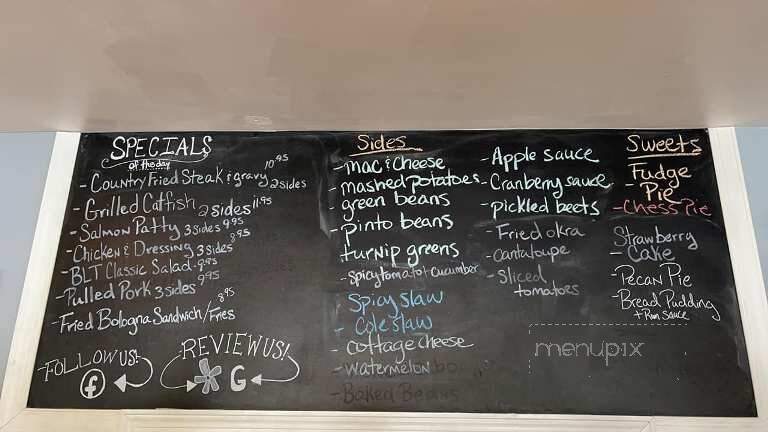 SPECIALS
of the day
- Country Fried Steak & gravy 10.95 2 sides
- Grilled Catfish 2 sides 11.95
- Salmon Patty 3 sides 9.95
- Chicken & Dressing 3 sides 8.95
- BLT Classic Salad - 9.95
- Pulled Pork 3 sides 9.95
- Fried Bologna Sandwich/Fries 8.95
FOLLOW US!
f
REVIEW US!
G
Sides
- mac & cheese
- mashed potatoes
- green beans
- pinto beans
turnip greens
- Spicy tomato & cucumber
- Spicy slaw
- Cole slaw
- cottage cheese
- watermelon
- Baked Beans
- Apple sauce
- Cranberry sauce
- pickled beets
- Fried okra
- cantaloupe
- Sliced
tomatoes
Sweets
Fudge
- Pie
- Chess Pie
Strawberry
- Cake
- Pecan Pie
- Bread Pudding
+ Rum Sauce
menupix